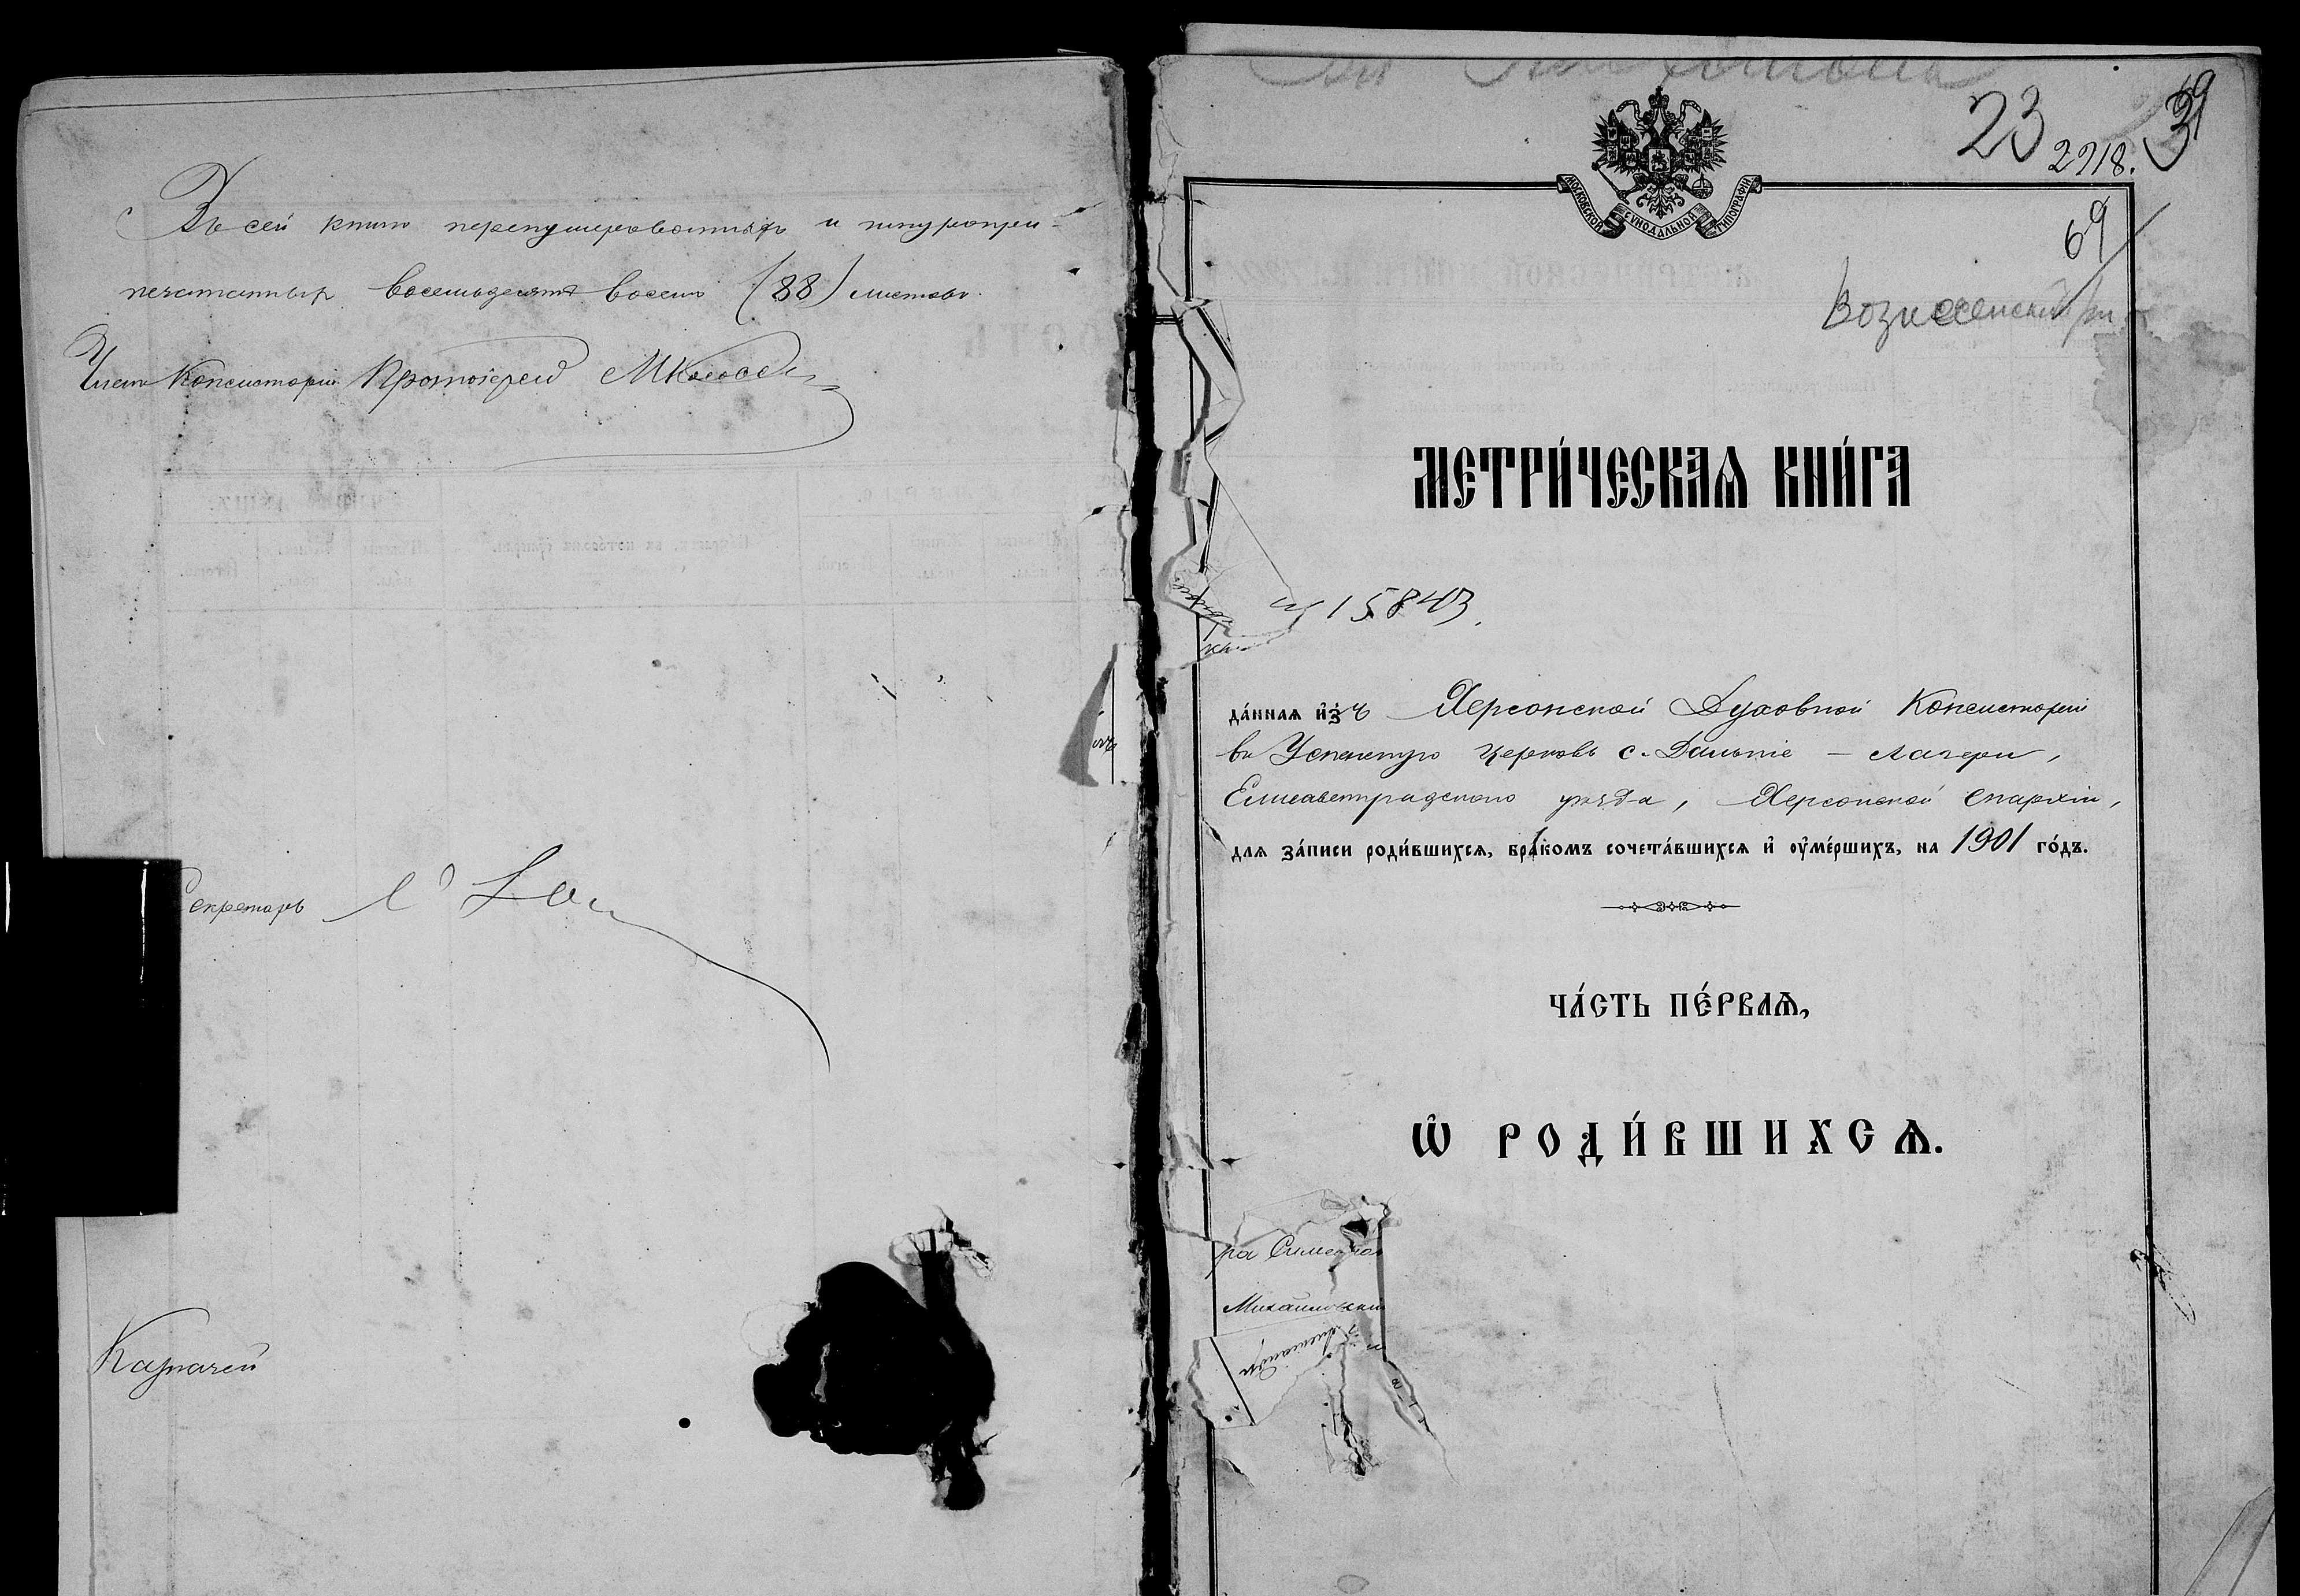 Въ сей книгѣ перенумерованныхъ и шнуропри-
печатанныхъ восемьдесятъ восемь (88) листовъ.
Членъ Консисторіи Протоіерей
Секретарь
Казначей
23
2918.
39
69
Вознесенскій
МОСКОВСКОЙ СѴНОДАЛЬНОЙ ТИПОГРАФІИ
МЕТРИ́ЧЕСКАѦ КНИ́ГА
15843.
да́ннаѧ и҆зъ Херсонской Духовной Консисторіи
въ Успенскую церковь с. Дальніе-Лагери,
Елисаветградскаго уѣзда, Херсонской Епархіи,
длѧ за́писи роди́вшихсѧ, бра́комъ сочета́вшихсѧ и҆ ѹ҆ме́ршихъ, на 1901 го́дъ.
ЧА́СТЬ ПЕ́РВАѦ,
Ѡ҆ РОДИ́ВШИХСѦ.
ра
Михайловскій